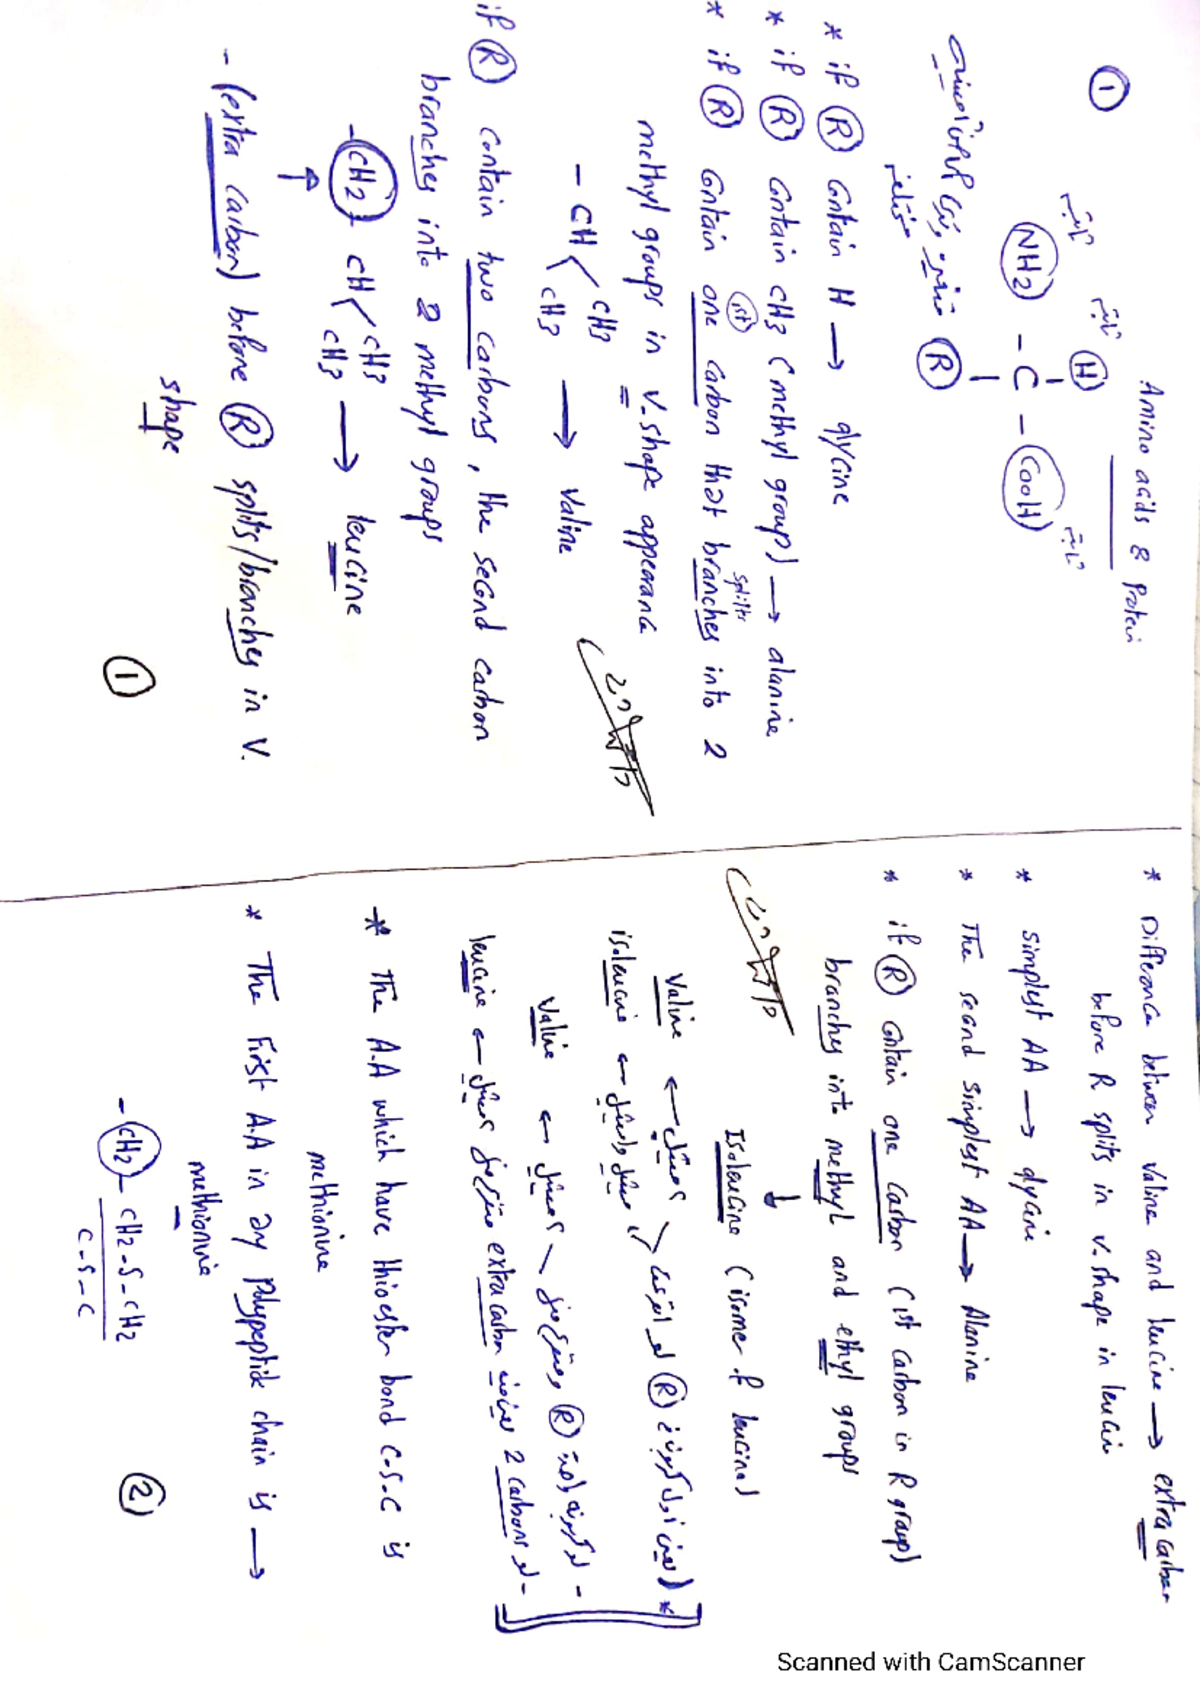 ①
Amino acids & Protein
ثابت
ثابت
H
NH2 - C - COOH
ثابت
R
* if R Contain H → glycine
* if R Contain CH3 (methyl group) → alanine
* if R Contain one carbon that branches into 2
(1st)
splitts
methyl groups in V-shape appearance
- CH
CH3
CH3
→ Valine
if R contain two carbons, the second carbon
branches into 2 methyl groups
- CH2 - CH
CH3
CH3
→ leucine
↑
- (extra carbon) before R splits/branches in V.
shape
①
* Difference between Valine and leucine → extra carbon
before R splits in V.shape in leucin
* simplest AA → glycine
* The second simplest AA → Alanine
* if R Contain one carbon (1st carbon in R group)
branches into methyl and ethyl groups
↓
Isoleucine (isomer of leucine)
Valine ←
isoleucine ← ميثيل وايثيل
Valine ←
leucine ← extra carbon 2 carbons
* The A.A which have thioester bond C-S-C is
methionine
* The First A.A in any Polypeptide chain is →
methionine
- CH2 - CH2-S-CH2
C-S-C
②
Scanned with CamScanner